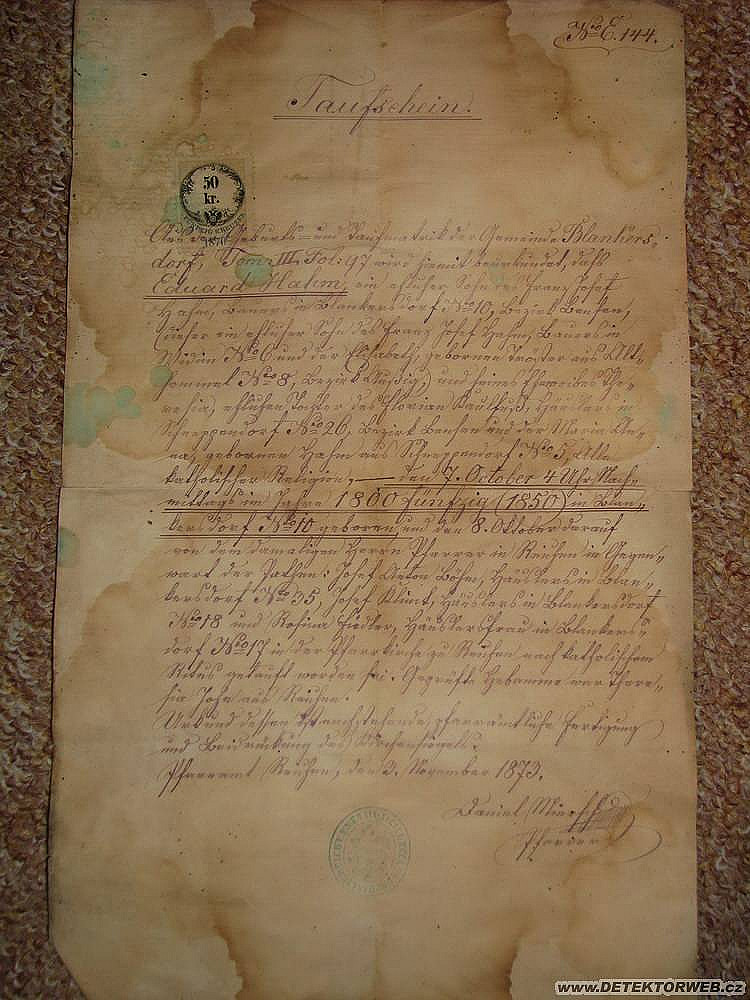 No E. 144.
Taufschein.
50
kr.
1870
Aus der Geburts- und Taufmatrik der Gemeinde Blankers-
dorf, Tom: III, Fol: 97 wird hiemit beurkundet, daß
Eduard Hahm, ein ehlicher Sohn des Franz Josef
Hahm, Bauers in Blankersdorf No 10, Bezirk Bensen,
(dieser ein ehlicher Sohn des Franz Josef Hahm, Bauers in
No 6 und der Elisabeth, gebornen aus Alt-
No 8, Bezirk Aussig) und seines Eheweibes The-
resia, ehlichen Tochter des Florian Kaulfuß, Häuslers in
Schneppendorf No 26, Bezirk Bensen und der Maria An-
na, gebornen Hahm aus Schneppendorf No 5, Alle
katholischer Religion, — den 7. October 4 Uhr Nach-
mittags im Jahre 1800 fünfzig (1850) in Blan-
kersdorf No 10 geboren, und den 8. Oktober darauf
von dem damaligen Herrn Pfarrer in Reichen in Gegen-
wart der Pathen: Josef Anton Böhm, Häuslers in Blan-
kersdorf No 35, Josef Häuslers in Blankersdorf
No 18 und Rosina Fiedler, Häuslersfrau in Blankers-
dorf No 17 in der Pfarrkirche zu Reichen nach katholischem
Ritus getauft worden sei. Geprüfte Hebamme war There-
sia John aus Reichen.
Urkund dessen ist nachstehende pfarramtliche Fertigung
und Beidrückung des Kirchensiegels.
Pfarramt Reichen, den 3. November 1873.
Daniel
Pfarrer
www.DETEKTORWEB.cz